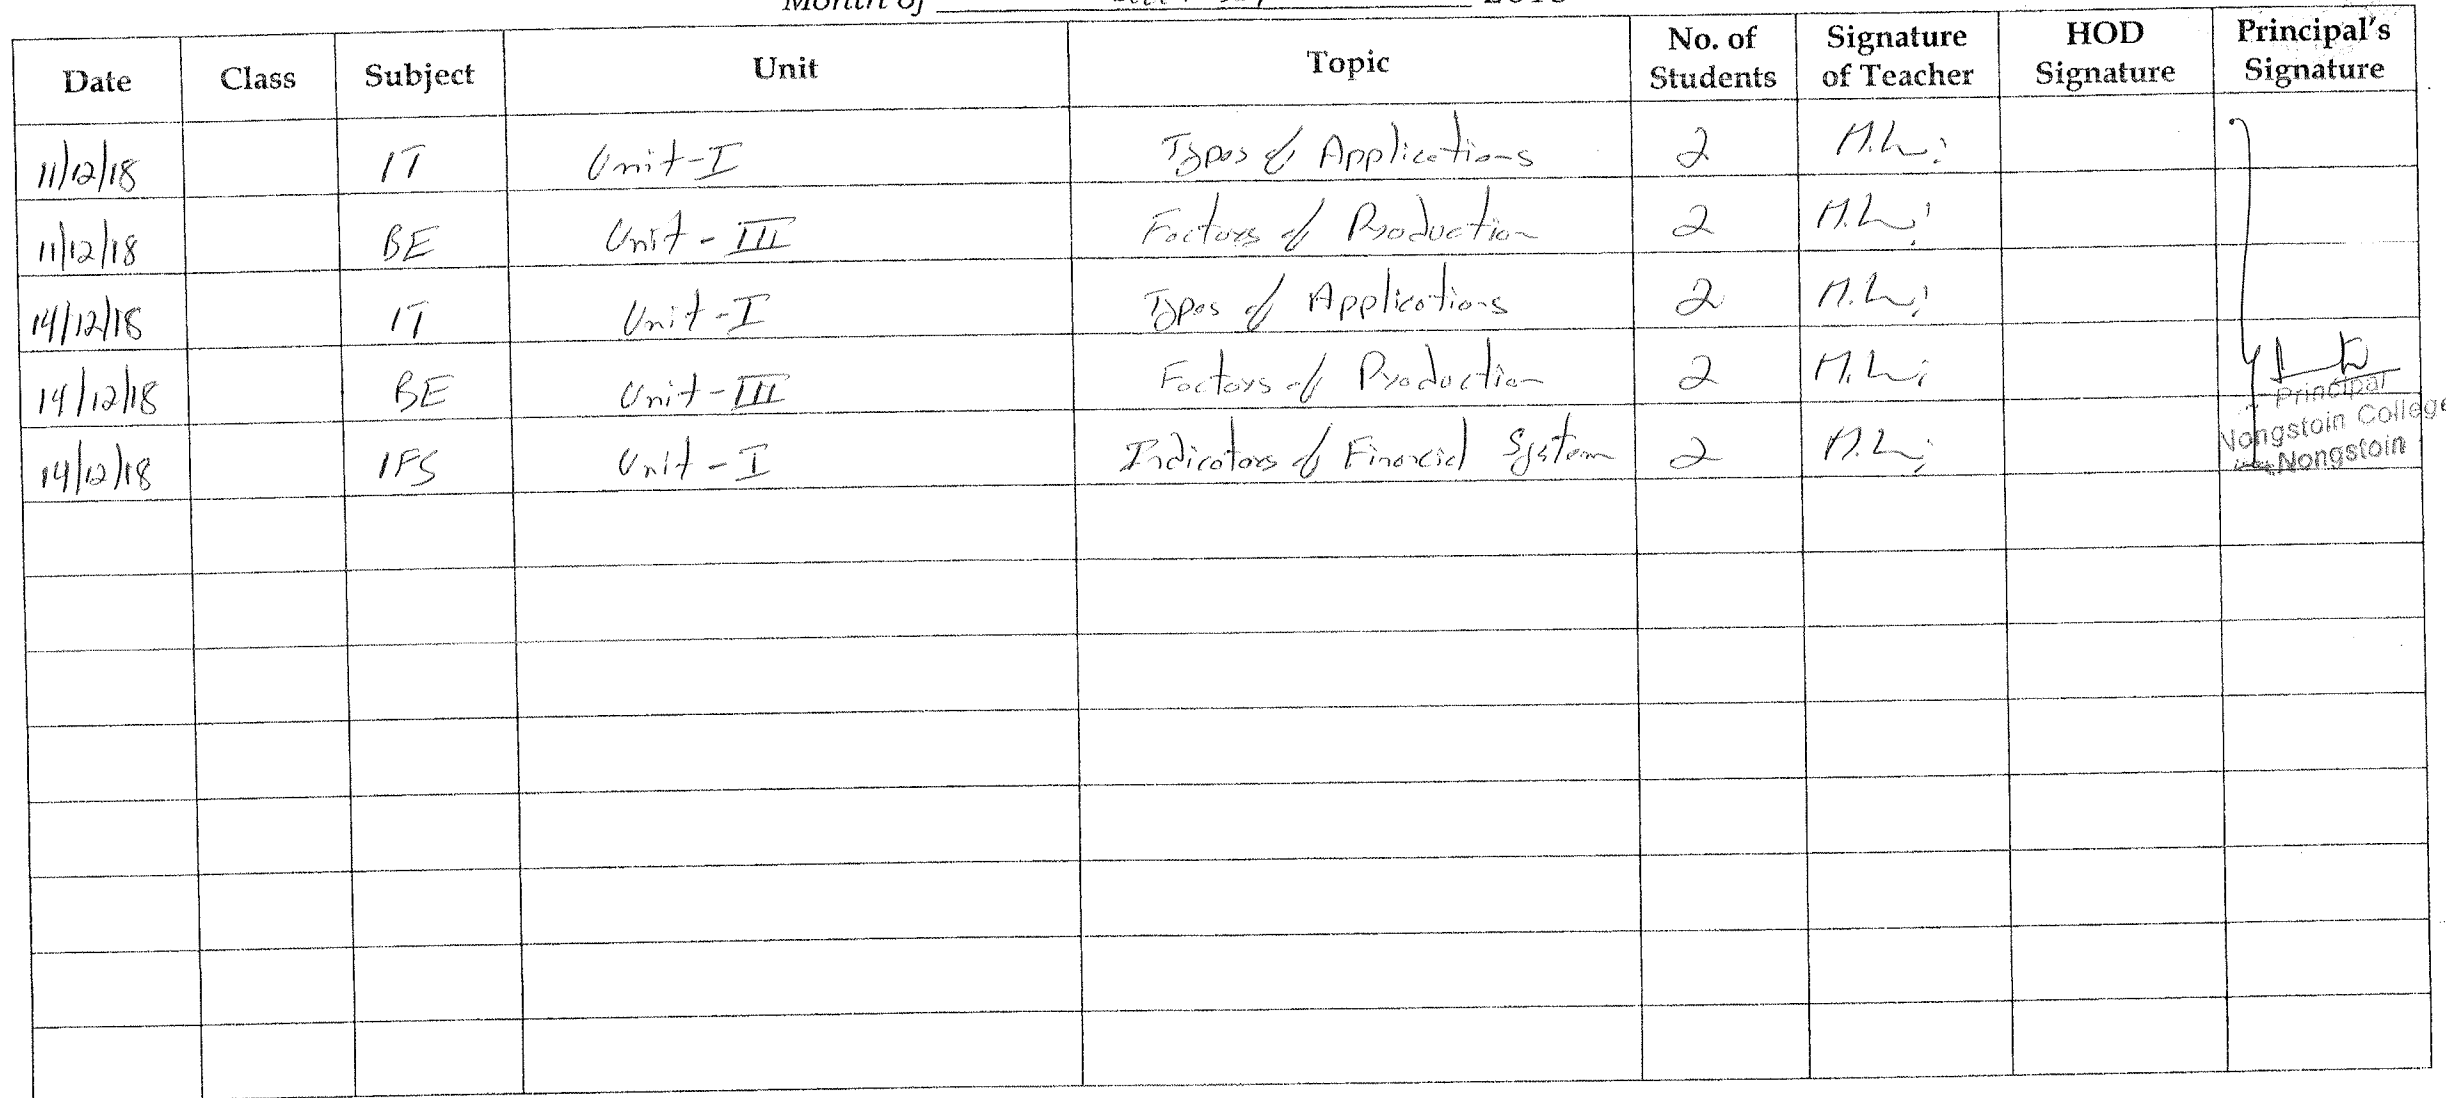 Month of
Date Class Subject Unit Topic No. of Students Signature of Teacher HOD Signature Principal's Signature
11/12/18 IT Unit-I Types of Applications 2
11/12/18 BE Unit-III Factors of Production 2
14/12/18 IT Unit-I Types of Applications 2
14/12/18 BE Unit-III Factors of Production 2
14/12/18 IFS Unit-I Indicators of Financial System 2
Principal
Nongstoin College
Nongstoin